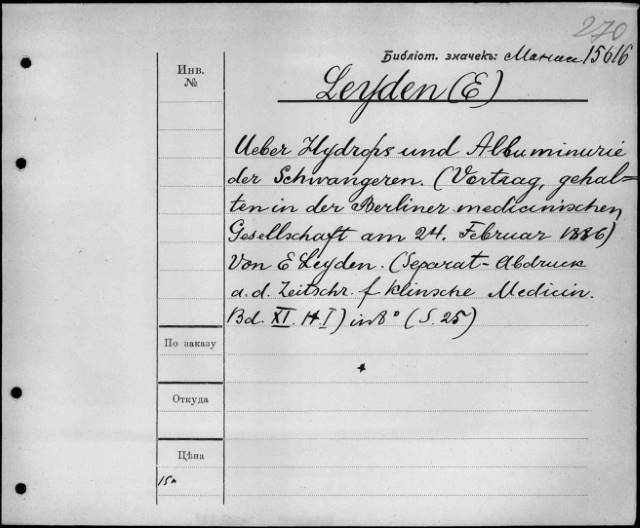 270
Библіот. значекъ: Манас 15616
Инв.
№
Leyden (E)
Ueber Hydrops und Albuminurie
der Schwangeren. (Vortrag, gehal=
ten in der Berliner medicinischen
Gesellschaft am 24. Februar 1886)
Von E Leyden. (Separat-Abdruck
a. d. Zeitschr. f klinsche Medicin.
Bd. XI. H I) in 8° (S. 25)
По заказу
Откуда
Цѣна
15к